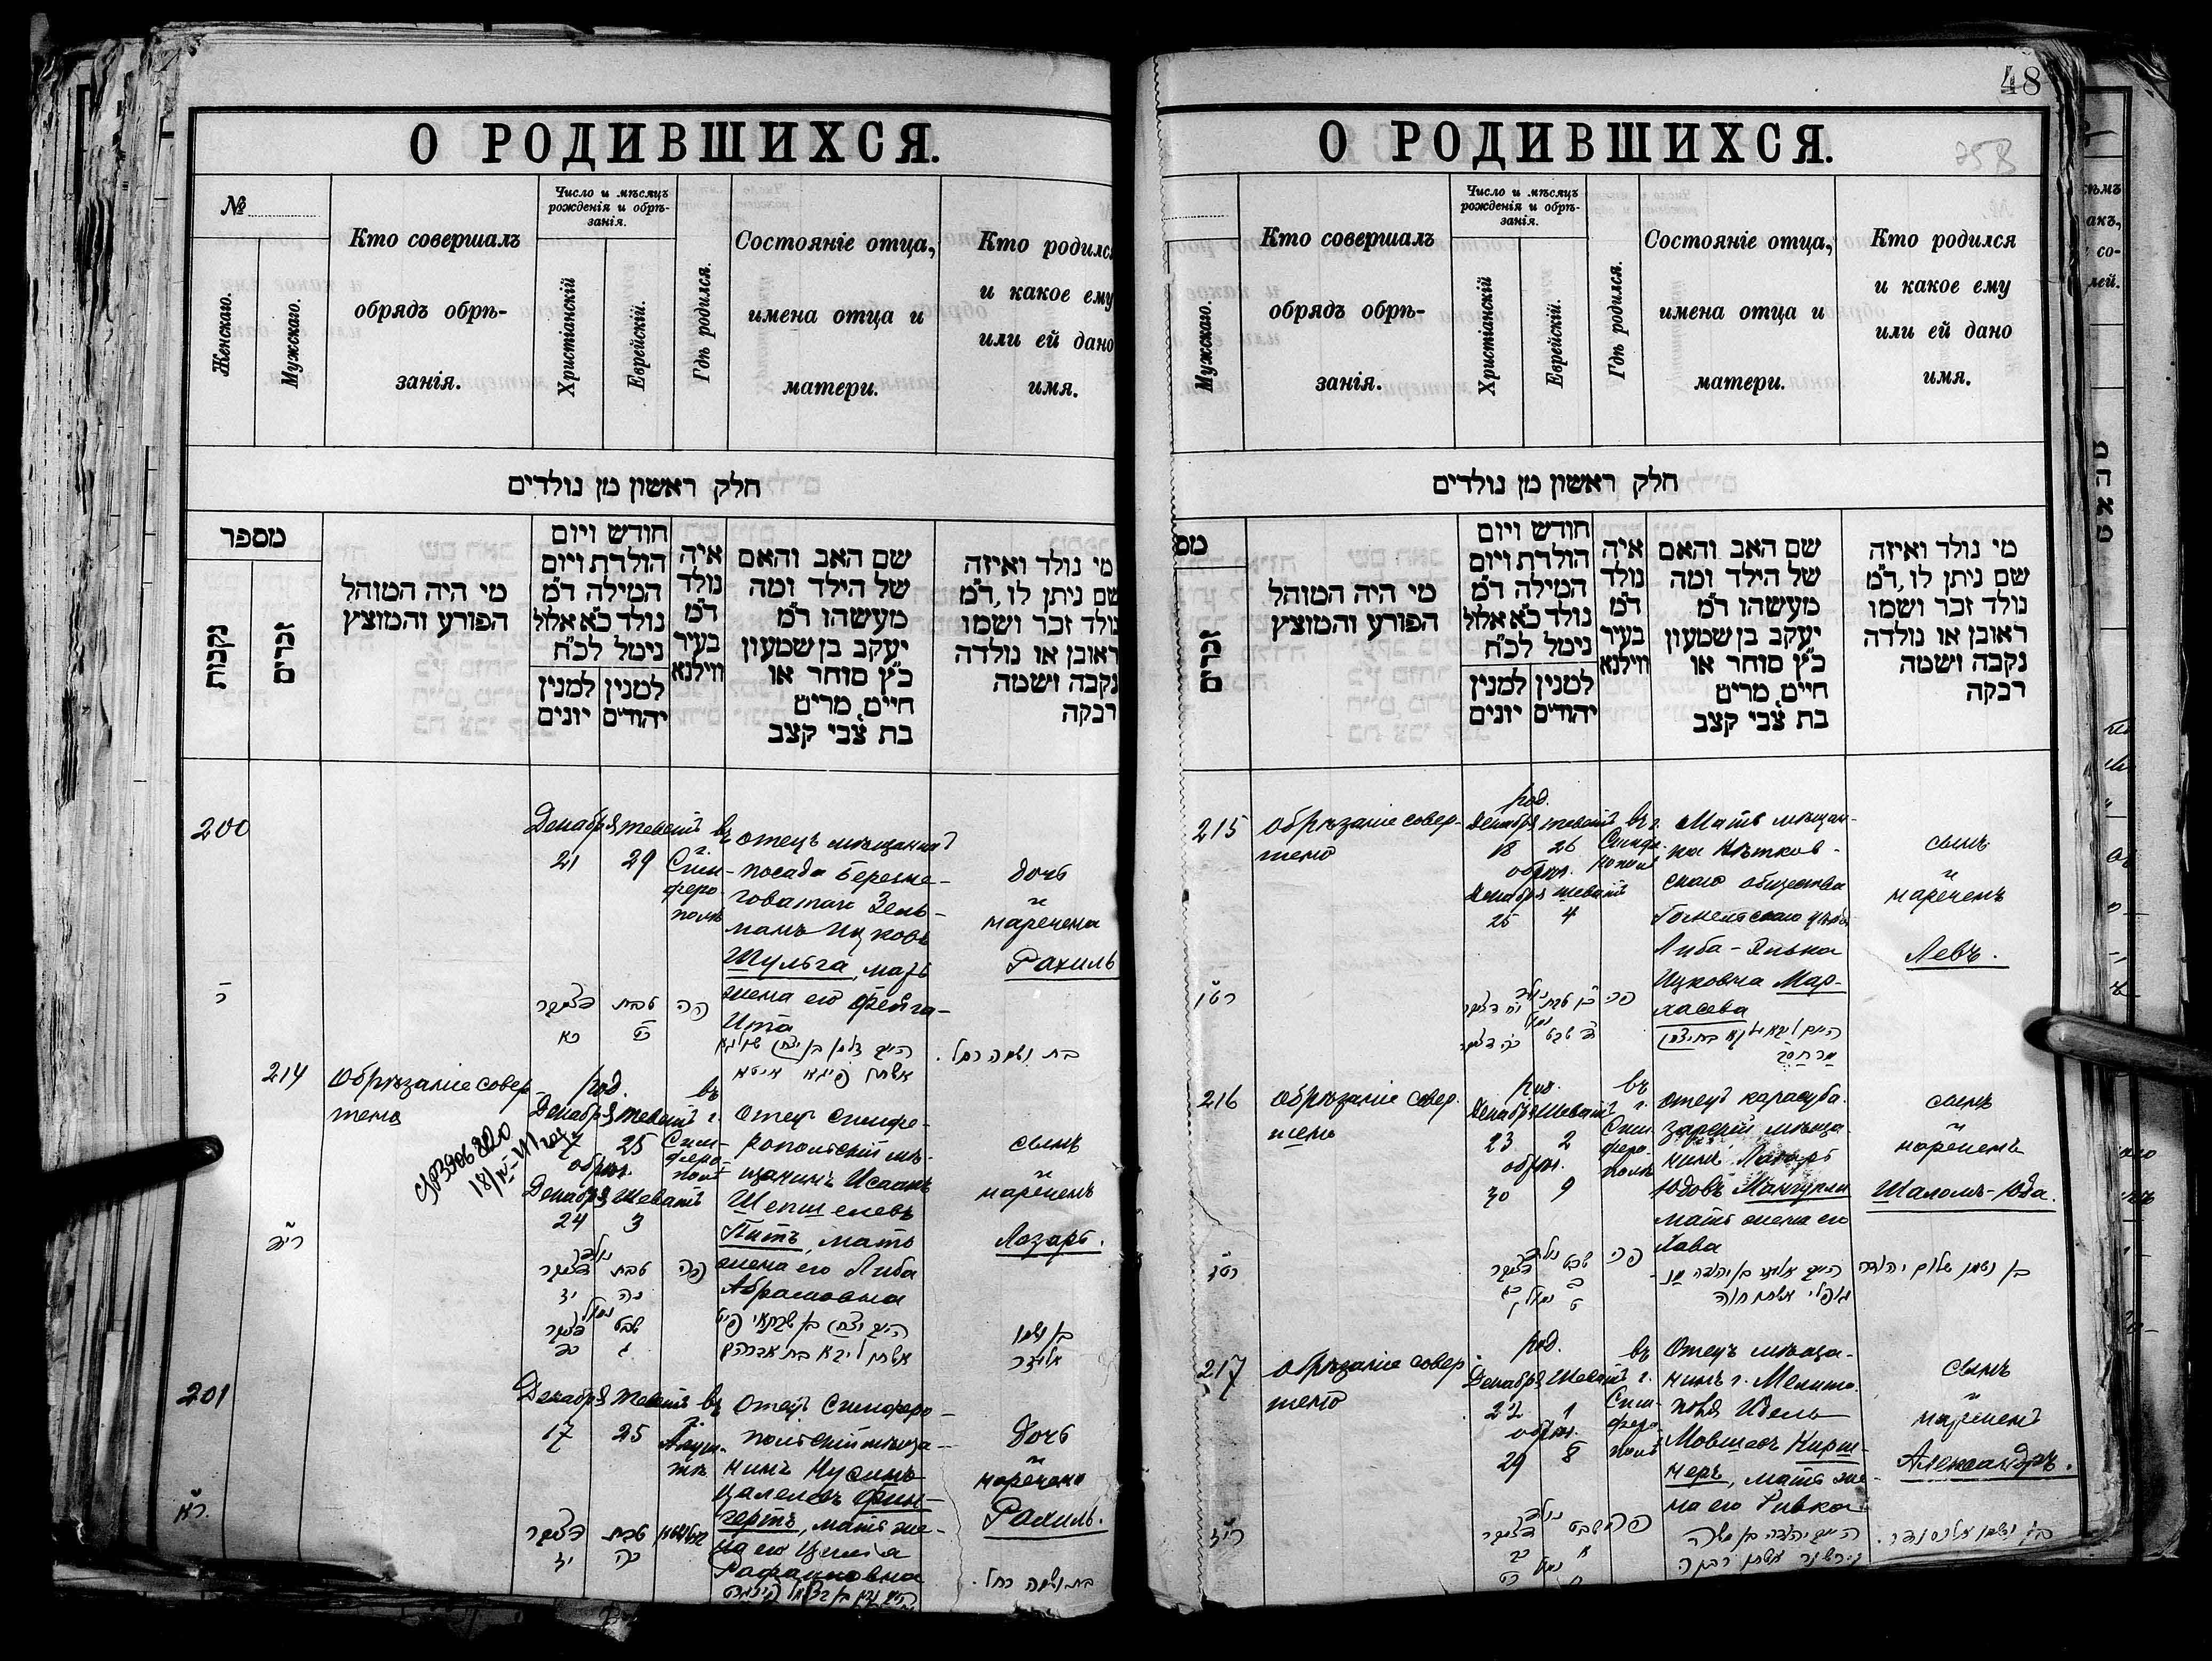 О РОДИВШИХСЯ.
№
Женскаго.
Мужскаго.
Кто совершалъ
обрядъ обрѣ-
занія.
Число и мѣсяцъ
рожденія и обрѣ-
занія.
Христіанскій
Еврейскій.
Гдѣ родился.
Состояніе отца,
имена отца и
матери.
Кто родилс
и какое ему
или ей дано
имя.
חלק ראשון מן נולדים
מספר
נקבות
זכרים
מי היה המוהל
הפורע והמוצץ
חודש ויום
הולדת ויום
המילה ד"מ
נולד כ"א אלול
נימל לכ"ח
למנין למנין
יהודים יונים
איה
נולד
ד"מ
בעיר
ווילנא
שם האב והאם
של הילד ומה
מעשהו ד"מ
יעקב בן שמעון
כ"ץ סוחר או
חיים, מרים
בת צבי קצב
מי נולד ואיזה
שם ניתן לו, ד"מ
נולד זכר ושמו
ראובן או נולדה
נקבה ושמה
רבקה
200
Декабря Теветъ въ
21 29
г.
Сим-
феро-
поль
отецъ мѣщанинъ
посада Березне-
говатаго Зель-
манъ Ицковъ
Шульга, мать
жена его Фейга-
Ита
дочь
и
наречена
Рахиль
ר
דצמבר טבת פה
כא כט
בת ושמה רחל.
214
обрѣзаніе совер
шено
род. въ
Декабря Теветъ г.
17 25
обрѣз.
Декабря Шеватъ
24 3
Сим-
феро-
поль
Отецъ симфе-
ропольскій мѣ-
щанинъ Исаакъ
Шепшелевъ
Питъ, мать
жена его Либа
Абрамовна
сынъ
и
нареченъ
Лазарь.
ריד
נולד
דצמבר טבת פה
יז כה
נמול
דצמבר שבט
כד ג
בן ושמו
אליעזר
201
Декабря Теветъ въ
17 25
г.
Алуш-
тѣ
Отецъ Симферо-
польскій мѣща-
нинъ Нусинъ
Цалелевъ Фин-
гертъ, мать же-
на его Циля
Рафаиловна
дочь
и
наречена
Рахиль.
רא
דצמבר טבת
יז כה
בת ושמה רחל.
48
О РОДИВШИХСЯ.
Мужскаго.
Кто совершалъ
обрядъ обрѣ-
занія.
Число и мѣсяцъ
рожденія и обрѣ-
занія.
Христіанскій
Еврейскій.
Гдѣ родился.
Состояніе отца,
имена отца и
матери.
Кто родился
и какое ему
или ей дано
имя.
חלק ראשון מן נולדים
מס
זכרים
מי היה המוהל
הפורע והמוצץ
חודש ויום
הולדת ויום
המילה ד"מ
נולד כ"א אלול
נימל לכ"ח
למנין למנין
יהודים יונים
איה
נולד
ד"מ
בעיר
ווילנא
שם האב והאם
של הילד ומה
מעשהו ד"מ
יעקב בן שמעון
כ"ץ סוחר או
חיים, מרים
בת צבי קצב
מי נולד ואיזה
שם ניתן לו, ד"מ
נולד זכר ושמו
ראובן או נולדה
נקבה ושמה
רבקה
215
обрѣзаніе совер-
шено
род.
Декабря Теветъ въ г.
18 26
обрѣз.
Декабря Шеватъ
25 4
Мать мѣщан-
ка Вѣтков-
скаго общества
Гомельскаго уѣзда
Либа-Элька
Ицковна Мар-
хасева
сынъ
и
нареченъ
Левъ.
216
обрѣзаніе совер.
шено
род. въ
Декабря Шеватъ г.
23 2
обрѣз.
30 9
Сим
феро-
поль
отецъ карасуба.
зарскій мѣща-
нинъ Лазарь
Юдовъ Мангупли
мать жена его
Хава
сынъ
и
нареченъ
Шаломъ-Юда.
בן ושמו שלום יהודה
217
обрѣзаніе совер.
шено
род. въ
Декабря Шеватъ г.
22 1
обрѣз.
29 8
Сим-
феро-
поль
Отецъ мѣща-
нинъ г. Мелито-
поля Идель
Мовшевъ Кирш-
неръ, мать же-
на его Ривка
сынъ
и
нареченъ
Александръ.
ריז
בן ושמו אלכסנדר.